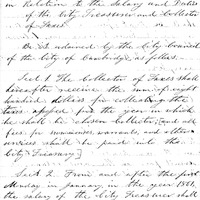 in Relation to the Salary and Duties
of the City Treasurer and Collector
of Taxes.
Be it ordained by the City Council
of the City of Cambridge as follows.
Sect. 1 The Collector of Taxes shall
hereafter receive the sum of eight
hundred dollars for collecting the
taxes, apprd for the year in which
he shall be chosen Collector, [and all
fees for summonses, warrants, and other
services shall be paid into the
City Treasury.]
Sect. 2. From and after the first
Monday in January in the year 1881,
the salary of the City Treasurer shall